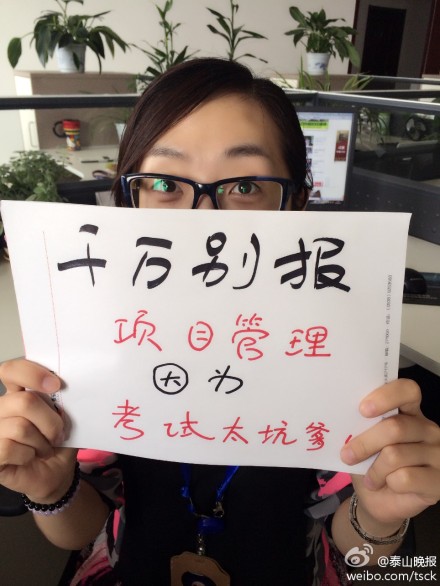 千万别报
项目管理
因为
考试太坑爹!
@泰山晚报
weibo.com/tsck